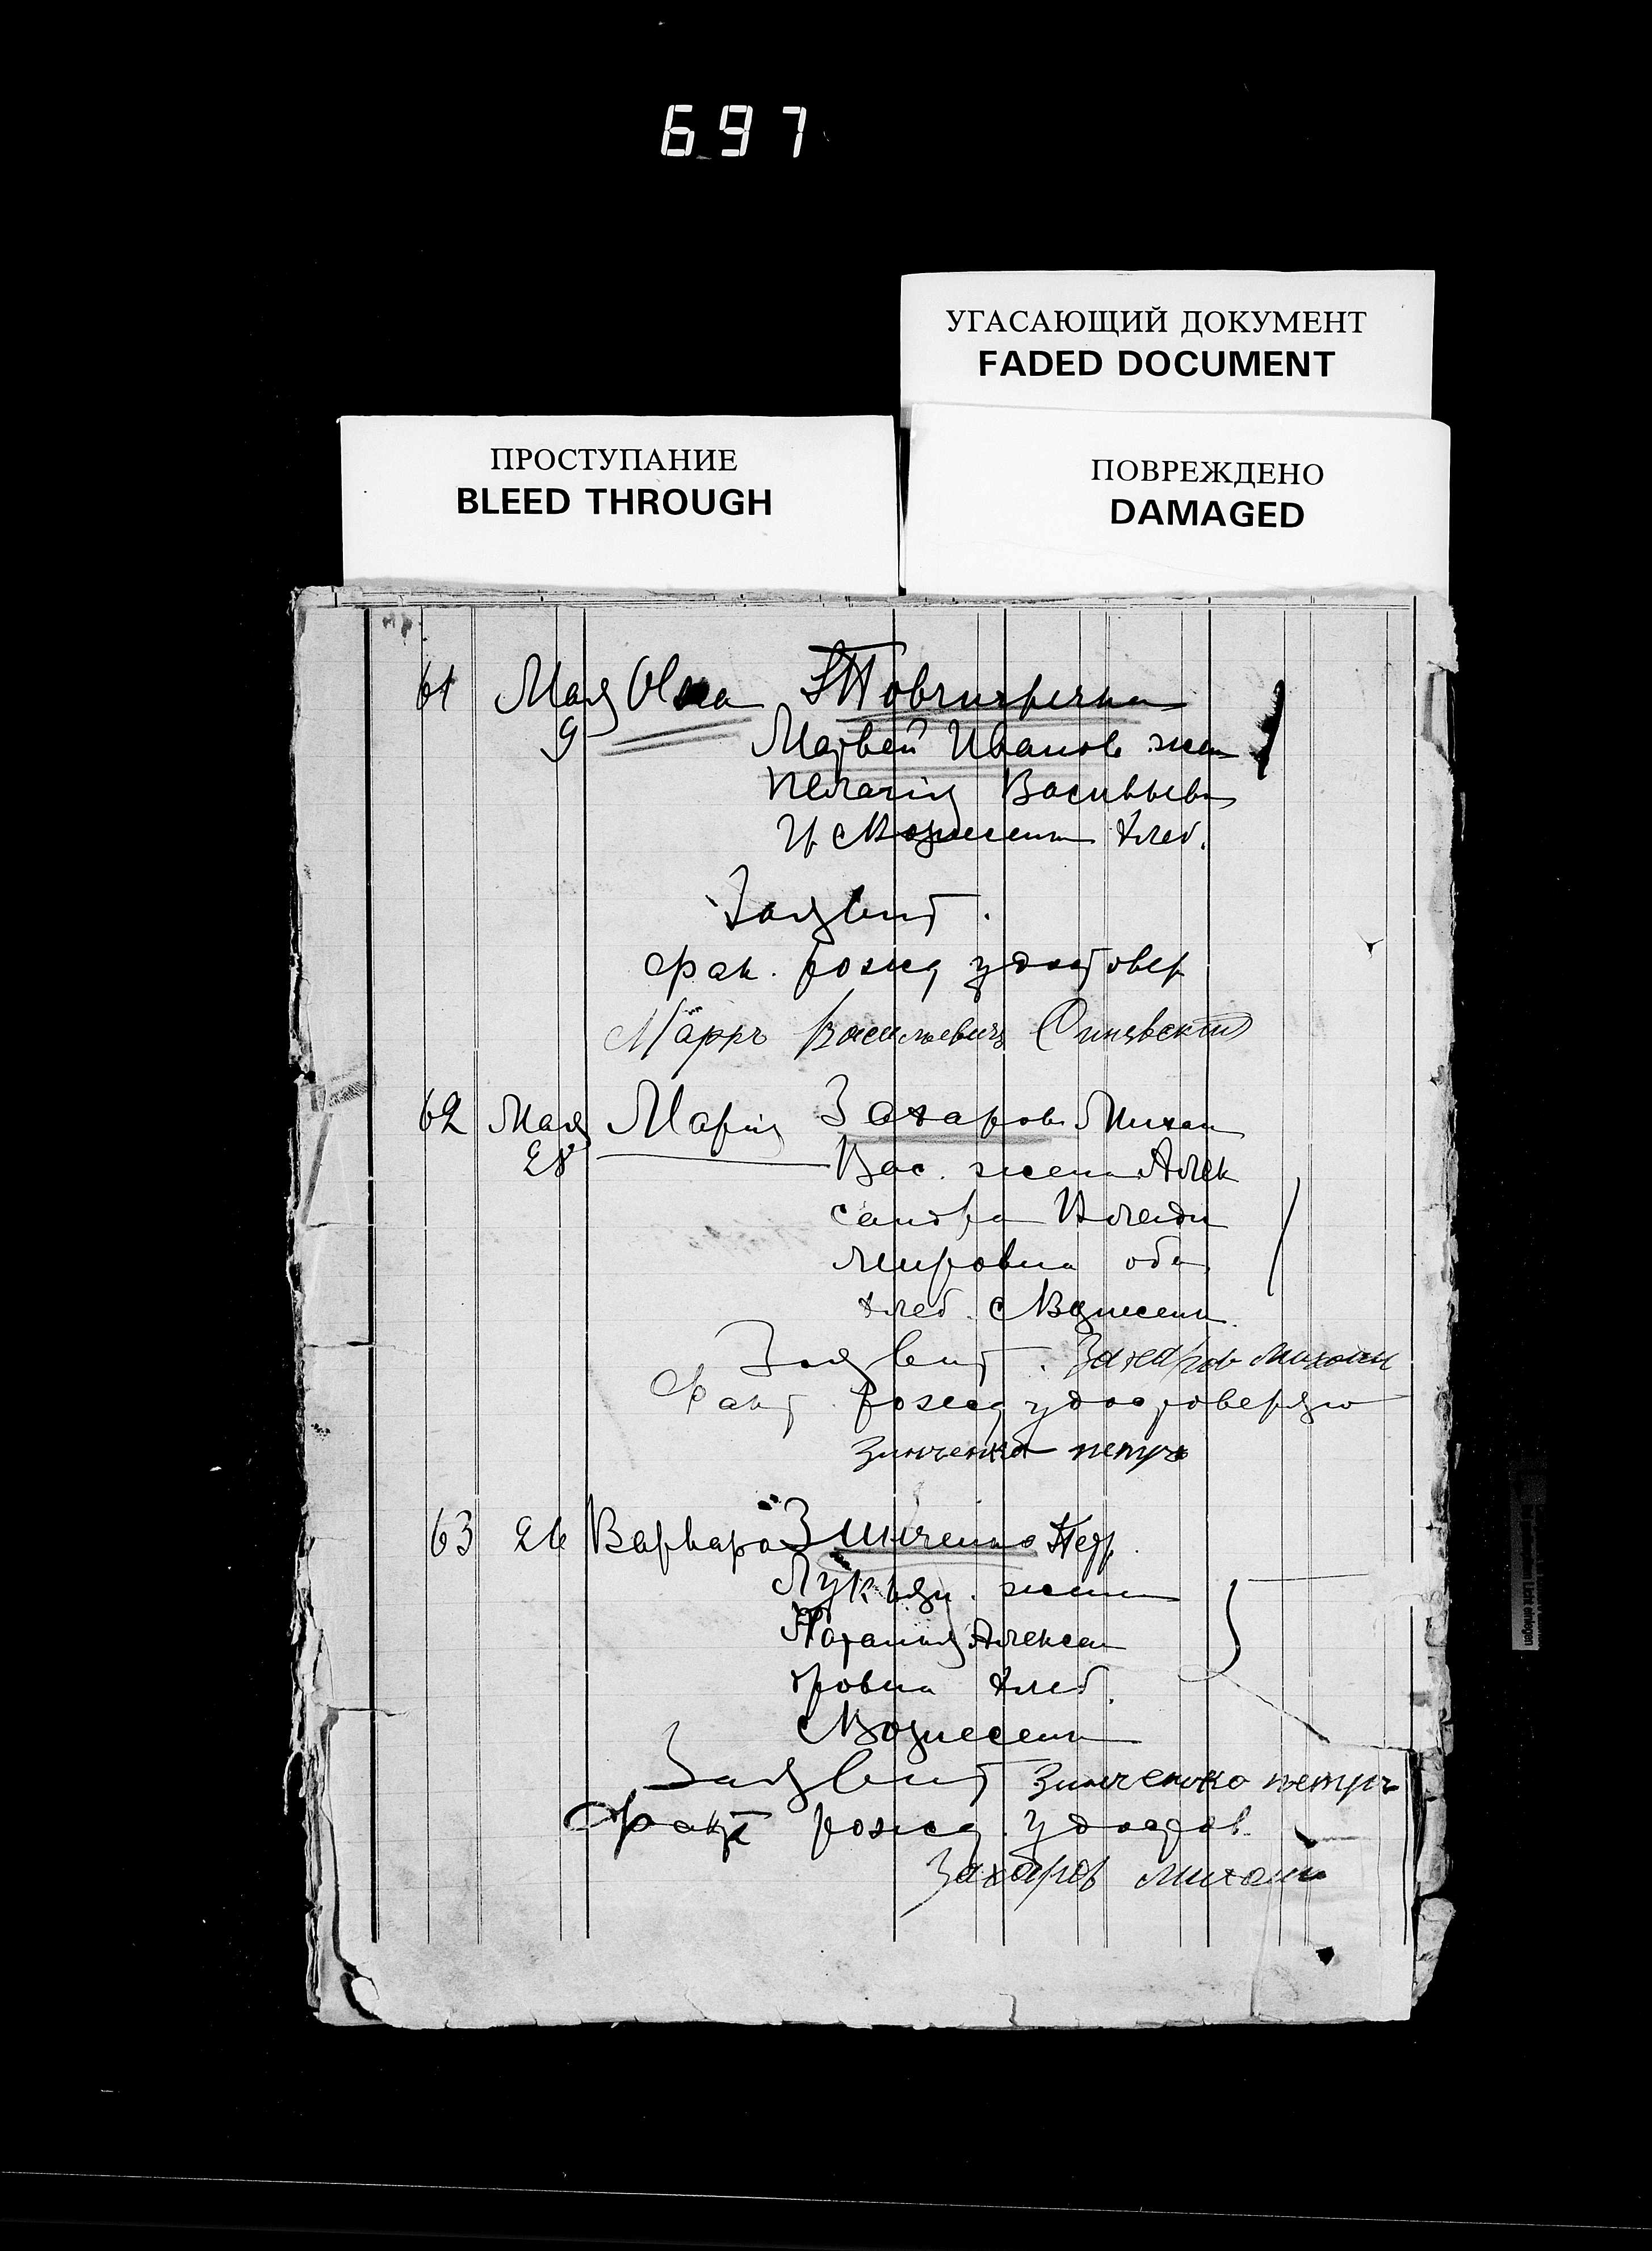 697
УГАСАЮЩИЙ ДОКУМЕНТ
FADED DOCUMENT
ПРОСТУПАНИЕ
BLEED THROUGH
ПОВРЕЖДЕНО
DAMAGED
61 Мая
9 Матвей Иванов жен
Пелагія Васильев
Гр с Вознесенк хлеб.
Заявит.
фак. рожд удостовер
Васильевич
62 Мая Марія Захаров Михаи
28 Вас. жена Алек
сандра Влади
мировна оба
хлеб. с Вознесен.
Заявит. Захаров Михаил
Факт рожд удостоверяю
Зинченко петръ
63 26 Варвара Зинченко Петр.
Лукьян. жена
Наталия Алексан
дровна хлеб.
с Вознесенк
Заявит Зинченко петръ
факт рожд. удостов.
Захаров михаил